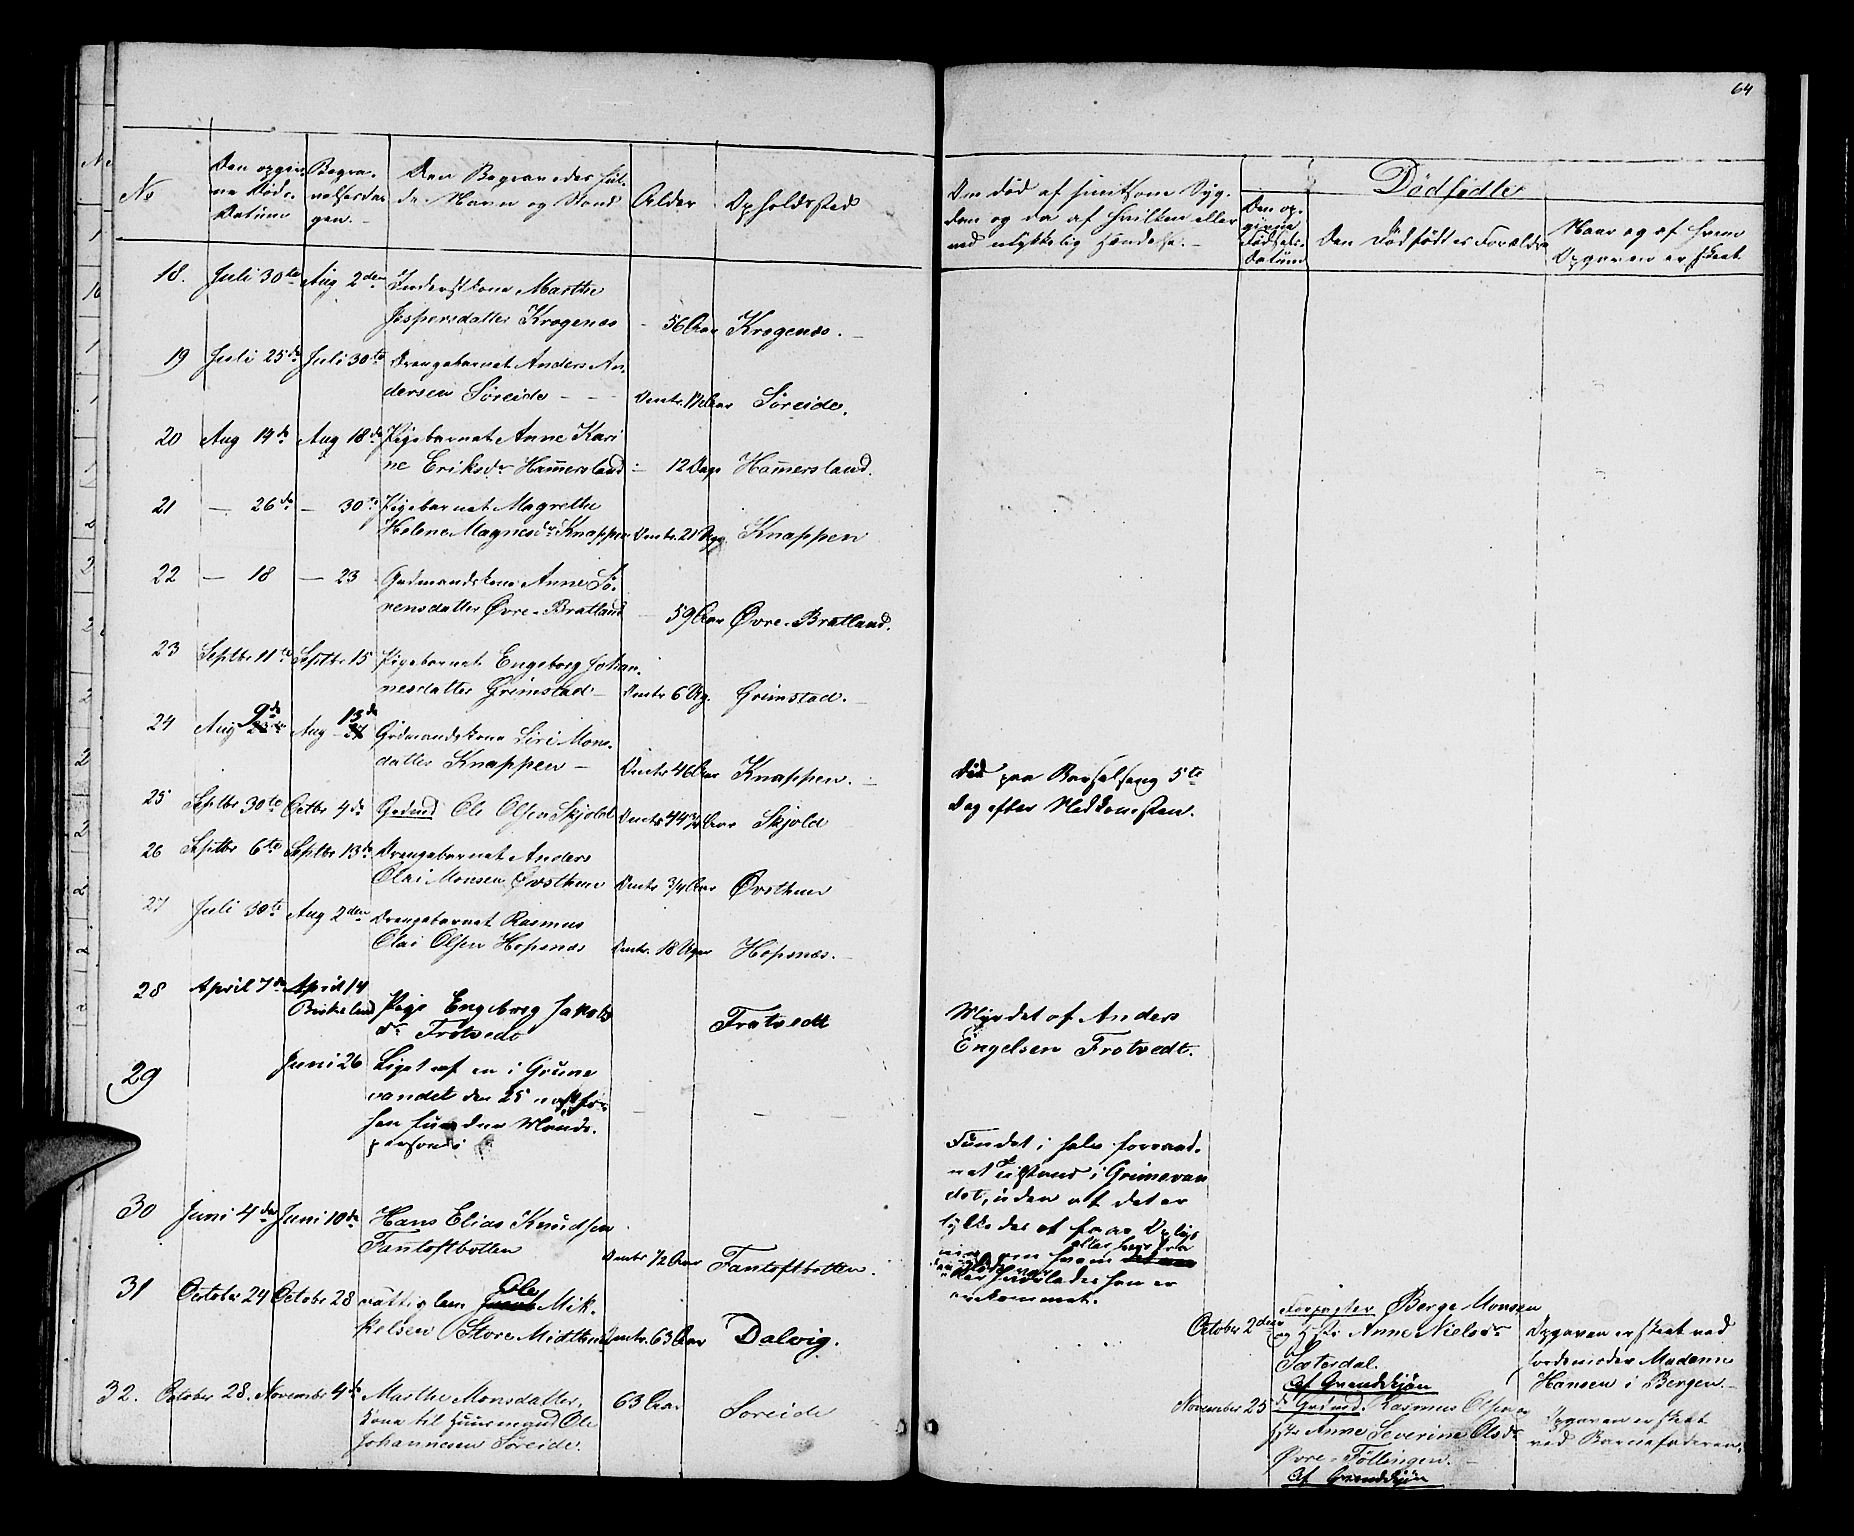 64
No
Den opgiv
ne Døds
Datum
Begra-
velsesda-
gen.
Den Begravedes ful-
de Navn og Stand
Alder
Opholdssted
Om død af smitsom Syg-
dom og da af hvilken eller
ved ulykkelig Hændelse.
Dødfødte
Den op-
givne
Fødsels-
datum
Den Dødfødtes Forældre
Naar og af hvem
Opgaven er skeet
18. Juli 30te Aug 2den Inderstkone Marthe
Jespersdatter Kragenæs - 56 Aar Kragenæs.
19 Juli 25de Juli 30te Drengebarnet Anders An-
dersen Søreide - - Omtr. Aar Søreide.
20 Aug 14de Aug 18de Pigebarnet Anne Kari
ne Eriksdr Hamersland - 12 Dage Hamersland.
21 - 26de - 30te Pigebarnet Magrethe
Helene Magnesdr Knappen Omtr. 21 Dge Knappen
22 - 18 - 23 Gadmandskone Anne Sö-
rensdatter Øvre-Bratland - 59 Aar Øvre-Bratland.
23 Septbr 11te Septbr 15 Pigebarnet Engeborg Johan-
nesdatter Grimstad - Omtr 6 Ug. Grimstad.
24 Aug 9de Aug 13de Gadmandskone Siri Mons-
datter Knappen - Omtr 46 Aar Knappen.
Död paa Barselseng 5te
Dag efter Nedkomsten.
25 Septbr 30te Octbr 4de Gadmd Ole Olsen Skjold Omtr 44 3/4 Aar Skjold
26 Septbr 6te Septbr 13de Drengebarnet Anders
Olai Monsen Øvsthun Omtr 3/4 Aar Øvsthun
27 Juli 30te Aug 2den Drengebarnet Rasmus
Olai Olsen Hopsnæs Omtr. 18 Uger Hopsnæs.
28 April 7de April 14
Birkeland Pige Engeborg Jakobs
dr Trotvedt Trotvedt
Myrdet af Anders
Engelsen Trotvedt.
29 Juni 26 Liget af en i Grime
vandet den 25 næstfo-
hen funden Mands-
person
Fundet i halv forraad-
net Tilstand i Grimevan
det, uden at det er
lykkedes at faae Oplys
ning om hvem
hvorledes han er
omkommet.
30 Juni 4de Juni 10de Hans Elias Knudsen
Fantoftbotten Omtr 1/2 Aar Fantoftbotten.
31 October 24 October 28 Ole Mik-
kelsen Store Midthun Omtr. 63 Aar Dalvig.
October 2den Forpagter Berge Monsen
og Hstr Anne Nielsdr
Sæterdal.
Af Grandskjøn
Opgaven er skeet ved
Jordemoder Madame
Hansen i Bergen.
32. October 28. November 4de Marthe Monsdatter,
Kone til Huusmand Ole
Johannesen Søreide. 63 Aar Søreide
November 25 Gadmd. Rasmus Olsen
Hstr Anne Severine Olsdr
Øvre-Føllingen.
Af Grandskjøn
Opgaven er skeet
ved Barnefaderen.